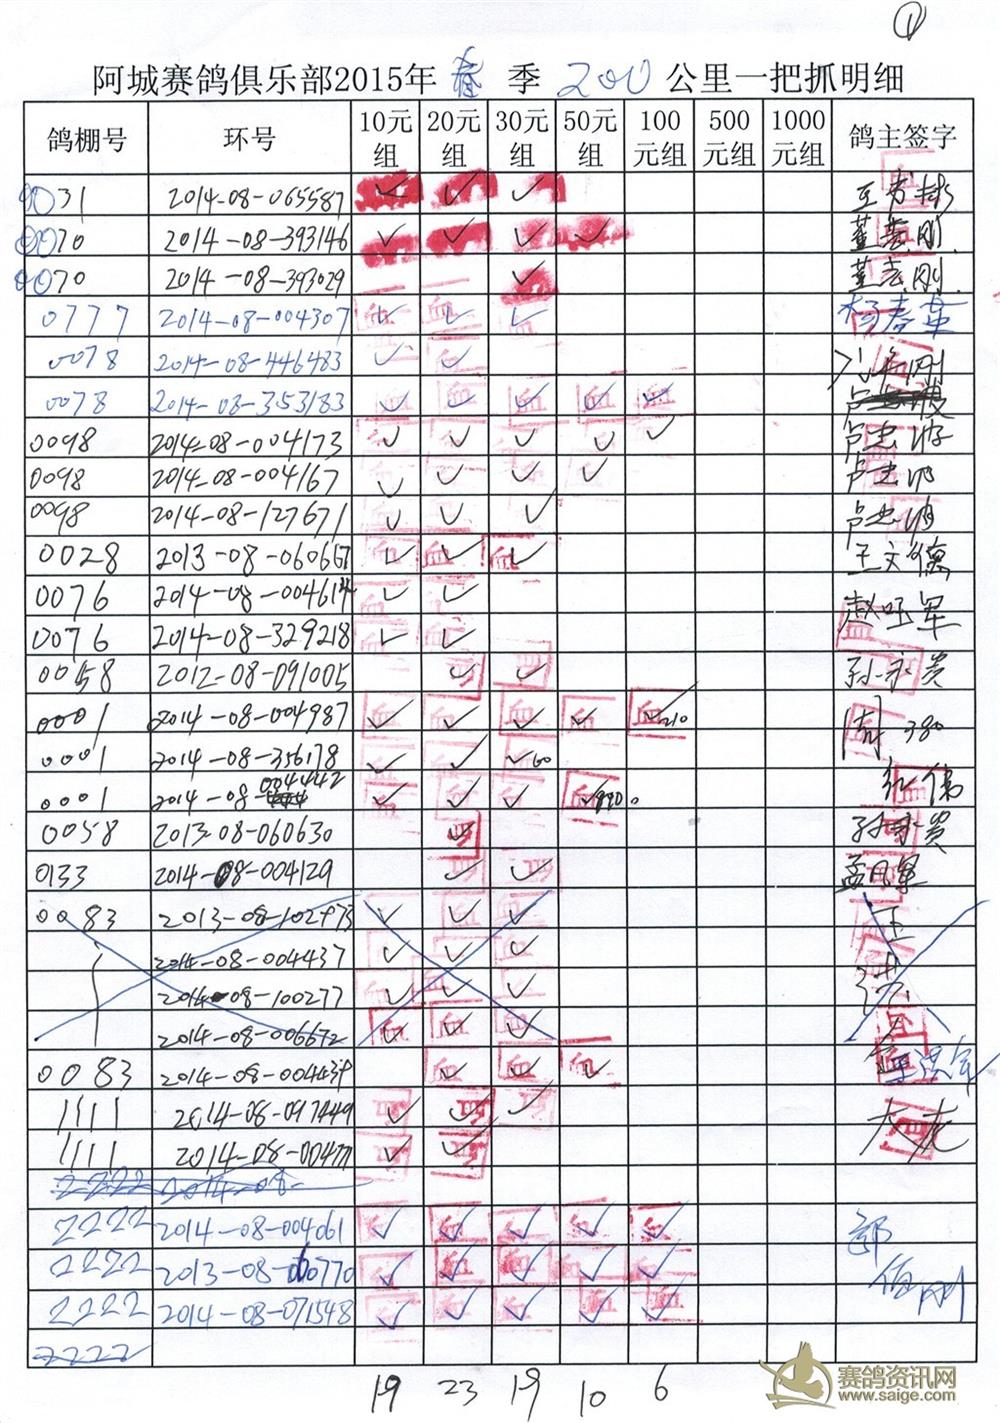 ①
阿城赛鸽俱乐部2015年 春 季 200 公里一把抓明细
鸽棚号 环号 10元组 20元组 30元组 50元组 100元组 500元组 1000元组 鸽主签字
0031 2014-08-065587 ✓ ✓ ✓
0070 2014-08-393146 ✓ ✓ ✓ ✓ 董志刚
0070 2014-08-393029 ✓ 董志刚
0777 2014-08-004307 ✓ ✓ ✓ 杨春
0078 2014-08-446483 ✓ ✓
0078 2014-08-353183 ✓ ✓ ✓ ✓ ✓
0098 2014-08-004173 ✓ ✓ ✓ ✓ ✓ 卢忠
0098 2014-08-004167 ✓ ✓ ✓ ✓ 卢忠
0098 2014-08-127671 ✓ ✓ ✓ 卢忠
0028 2013-08-0606 ✓ ✓ ✓ 王文德
0076 2014-08-004614 ✓ ✓ 赵 军
0076 2014-08-329218 ✓ ✓
0058 2012-08-091005 ✓ ✓ 孙永贵
0001 2014-08-004987 ✓ ✓ ✓ ✓ ✓210 380
0001 2014-08-356178 ✓ ✓ ✓60
0001 2014-08-004442 ✓ ✓ ✓ ✓ 伟
0058 2013-08-060630 ✓ 孙永贵
0133 2014-08-004129 ✓ ✓ 孟凡军
0083 2013-08-102973 ✓ ✓ ✓ 王
2014-08-004437 ✓ ✓ ✓
2014-08-100277 ✓ ✓ ✓ 洪
2014-08-006672 ✓ ✓ ✓
0083 2014-08-004439 ✓ ✓ ✓ 王洪军
1111 2014-08-097449 ✓ ✓ ✓
1111 2014-08-004 ✓ ✓
2222 2014-08-
2222 2014-08-004061 ✓ ✓ ✓ ✓ ✓ 郭
2222 2013-08-060770 ✓ ✓ ✓ ✓ ✓ 伯刚
2222 2014-08-071548 ✓ ✓ ✓ ✓ ✓
2222
19 23 19 10 6
赛鸽资讯网
www.saige.com